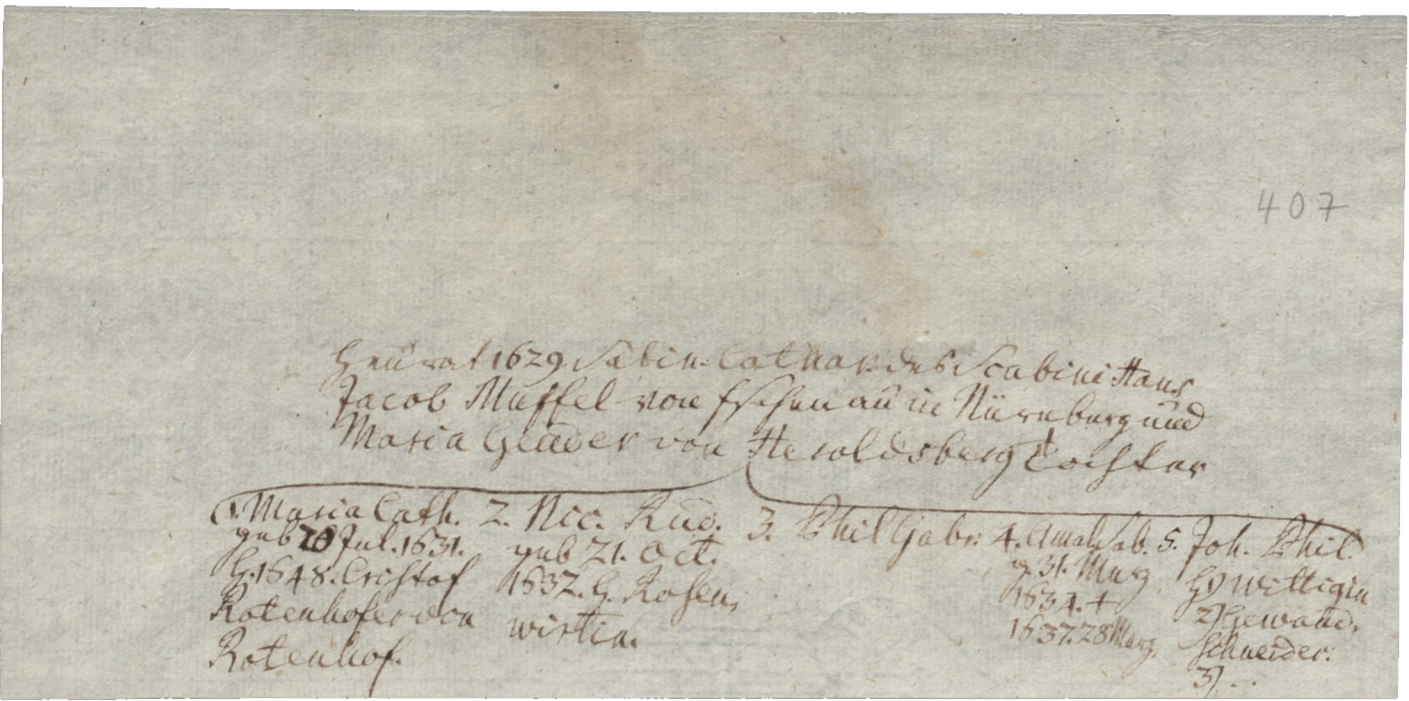 407
Heurat 1629 Sabin. Cathar. des Scabini Hans
Jacob Muffel von Eschenau in Nürnberg und
Maria Geuder von Heroldsberg Tochter
1. Maria Cath.
geb 20 Jul. 1631.
H. 1648. Cristof
Rotenhofer von
Rotenhof.
2. Nic. Rud.
geb 21. Oct.
1632. H. Rosen,
wirtin.
3. Phil Gabr.
4. Amal Sab.
g. 31. Marz
1634. +
1637. 28 Marz.
5. Joh. Phil.
H 1) Wittigin
2) Gewand,
schneider.
3) . .